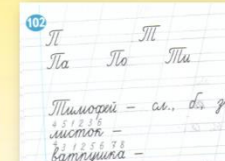 102
П Т
Па По Ти
Тимофей – сл., б., з
4 5 1 2 3 6
листок –
4 3 1 2 5 6 7 8
ватрушка –